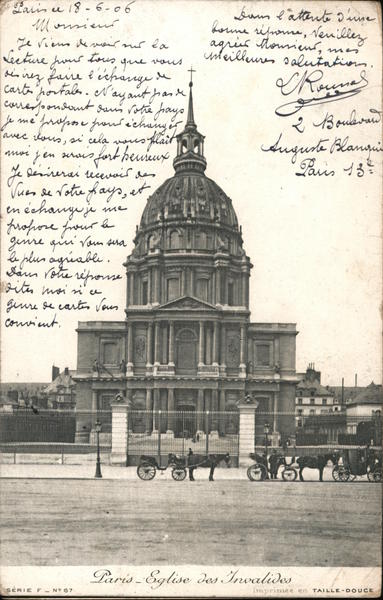 Paris ce 18-6-06
Monsieur
Je viens de voir sur la
Lecture pour tous que vous
désirez faire l'échange de
carte postale. N'ayant pas de
correspondant dans votre pays
je me propose pour échanger
avec vous, si cela vous plait
moi j'en serais fort heureux
Je désirerai recevoir des
vues de votre pays, et
en échange je me
propose pour le
genre qui vous sera
le plus agréable.
Dans votre réponse
dites moi si ce
genre de cartes vous
convient.
Dans l'attente d'une
bonne réponse, veuillez
agréer Monsieur, mes
meilleures salutations.
L Roussel
2 Boulevard
Auguste Blanqui
Paris 13e
Paris - Eglise des Invalides
SÉRIE F. - No 67
Imprimée en TAILLE-DOUCE